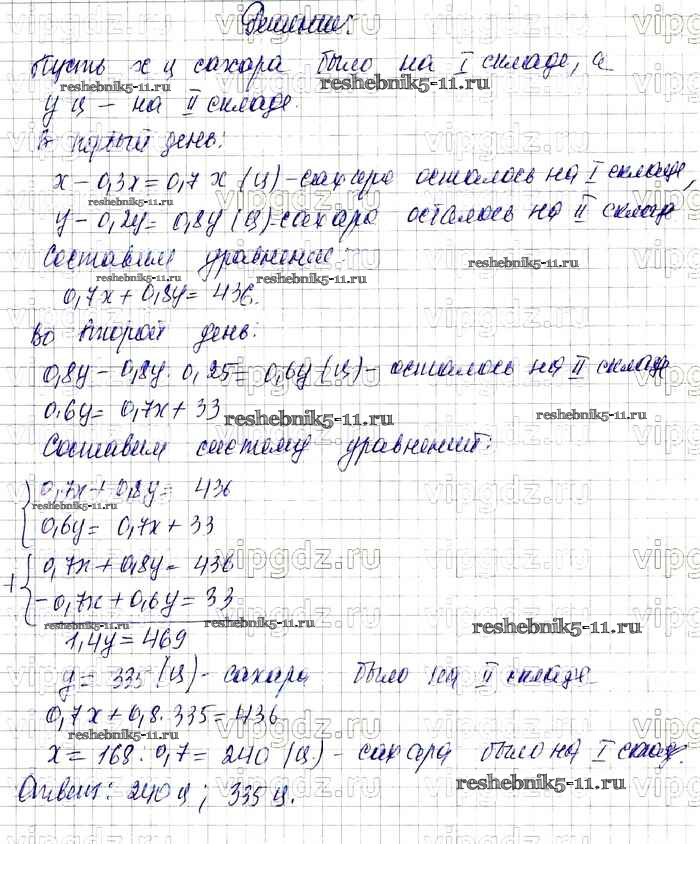 Решение:
Пусть x ц сахара было на I складе, а
y ц – на II складе.
В первый день:
x – 0,3x = 0,7x (ц) – сахара осталось на I складе,
y – 0,2y = 0,8y (ц) – сахара осталось на II складе
Составим уравнение:
0,7x + 0,8y = 436.
Во второй день:
0,8y – 0,8y · 0,25 = 0,6y (ц) – осталось на II складе
0,6y = 0,7x + 33
Составим систему уравнений:
0,7x + 0,8y = 436
0,6y = 0,7x + 33
+ 0,7x + 0,8y = 436
–0,7x + 0,6y = 33
1,4y = 469
y = 335 (ц) – сахара было на II складе
0,7x + 0,8 · 335 = 436
x = 168 : 0,7 = 240 (ц) – сахара было на I складе.
Ответ: 240 ц ; 335 ц.
reshebnik5-11.ru
vipgdz.ru